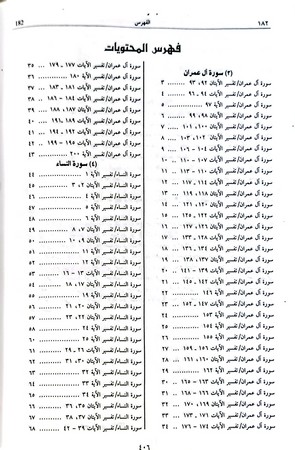 ١٨٢
الفهرس
192
فهرس المحتويات
(٣) سورة آل عمران
سورة آل عمران/تفسير الآيتان ٩٢، ٩٣ ... ٣
سورة آل عمران/تفسير الآيات ٩٤ - ٩٦ ... ٤
سورة آل عمران/تفسير الآية ٩٧ ... ٥
سورة آل عمران/تفسير الآيتان ٩٨، ٩٩ ... ٦
سورة آل عمران/تفسير الآيتان ١٠٠، ١٠١ ... ٧
سورة آل عمران/تفسير الآيتان ١٠٢، ١٠٣ ... ٨
سورة آل عمران/تفسير الآيات ١٠٤ - ١٠٦ ... ٩
سورة آل عمران/تفسير الآيات ١٠٧ - ١١٠ ... ١٠
سورة آل عمران/تفسير الآيات ١١٠ - ١١٣ ... ١١
سورة آل عمران/تفسير الآيات ١١٤ - ١١٧ ... ١٢
سورة آل عمران/تفسير الآيتان ١١٨، ١١٩ ... ١٣
سورة آل عمران/تفسير الآيتان ١٢٠، ١٢١ ... ١٤
سورة آل عمران/تفسير الآيات ١٢٢ - ١٢٥ ... ١٥
سورة آل عمران/تفسير الآيات ١٢٦ - ١٢٧ ... ١٦
سورة آل عمران/تفسير الآيات ١٢٨ - ١٣٣ ... ١٧
سورة آل عمران/تفسير الآيات ١٣٤ - ١٣٦ ... ١٨
سورة آل عمران/تفسير الآيتان ١٣٧، ١٣٨ ... ١٩
سورة آل عمران/تفسير الآيات ١٣٩ - ١٤١ ... ٢٠
سورة آل عمران/تفسير الآيات ١٤٢ - ١٤٥ ... ٢١
سورة آل عمران/تفسير الآية ١٤٦ ... ٢٢
سورة آل عمران/تفسير الآيات ١٤٧ - ١٥٢ ... ٢٣
سورة آل عمران/تفسير الآية ١٥٣ ... ٢٤
سورة آل عمران/تفسير الآية ١٥٤ ... ٢٥
سورة آل عمران/تفسير الآية ١٥٥ ... ٢٦
سورة آل عمران/تفسير الآيات ١٥٦ - ١٥٩ ... ٢٧
سورة آل عمران/تفسير الآيتان ١٦٠، ١٦١ ... ٢٨
سورة آل عمران/تفسير الآية ١٦٢ ... ٢٩
سورة آل عمران/تفسير الآيات ١٦٣ - ١٦٥ ... ٣٠
سورة آل عمران/تفسير الآيات ١٦٦ - ١٦٨ ... ٣١
سورة آل عمران/تفسير الآيتان ١٦٩، ١٧٠ ... ٣٢
سورة آل عمران/تفسير الآيات ١٧١ - ١٧٣ ... ٣٣
سورة آل عمران/تفسير الآيات ١٧٤ - ١٧٦ ... ٣٤
سورة آل عمران/تفسير الآيات ١٧٧ - ١٧٩ ... ٣٥
سورة آل عمران/تفسير الآية ١٨٠ ... ٣٦
سورة آل عمران/تفسير الآيات ١٨١ - ١٨٣ ... ٣٧
سورة آل عمران/تفسير الآيات ١٨٤ - ١٨٦ ... ٣٨
سورة آل عمران/تفسير الآيتان ١٨٧، ١٨٨ ... ٣٩
سورة آل عمران/تفسير الآيات ١٨٩ - ١٩١ ... ٤٠
سورة آل عمران/تفسير الآيات ١٩٢ - ١٩٤ ... ٤١
سورة آل عمران/تفسير الآيات ١٩٥ - ١٩٩ ... ٤٢
سورة آل عمران/تفسير الآية ٢٠٠ ... ٤٣
(٤) سورة النساء
سورة النساء/تفسير الآية ١ ... ٤٤
سورة النساء/تفسير الآيتان ٢، ٣ ... ٤٥
سورة النساء/تفسير الآية ٤ ... ٤٦
سورة النساء/تفسير الآية ٥ ... ٤٧
سورة النساء/تفسير الآية ٦ ... ٤٨
سورة النساء/تفسير الآيتان ٧، ٨ ... ٤٩
سورة النساء/تفسير الآيتان ٩، ١٠ ... ٥٠
سورة النساء/تفسير الآية ١١ ... ٥١
سورة النساء/تفسير الآية ١٢ ... ٥٢
سورة النساء/تفسير الآيات ١٣ - ١٦ ... ٥٣
سورة النساء/تفسير الآيتان ١٧، ١٨ ... ٥٤
سورة النساء/تفسير الآية ١٩ ... ٥٥
سورة النساء/تفسير الآيتان ٢٠، ٢١ ... ٥٦
سورة النساء/تفسير الآيتان ٢٢، ٢٣ ... ٥٧
سورة النساء/تفسير الآية ٢٤ ... ٥٨
سورة النساء/تفسير الآية ٢٥ ... ٦٠
سورة النساء/تفسير الآيات ٢٦ - ٢٩ ... ٦١
سورة النساء/تفسير الآيتان ٣٠، ٣١ ... ٦٢
سورة النساء/تفسير الآية ٣٢ ... ٦٣
سورة النساء/تفسير الآية ٣٣ ... ٦٤
سورة النساء/تفسير الآية ٣٤ ... ٦٥
سورة النساء/تفسير الآيتان ٣٥، ٣٦ ... ٦٦
سورة النساء/تفسير الآيتان ٣٧، ٣٨ ... ٦٧
سورة النساء/تفسير الآيات ٣٩ - ٤٢ ... ٦٨
٤٠٦